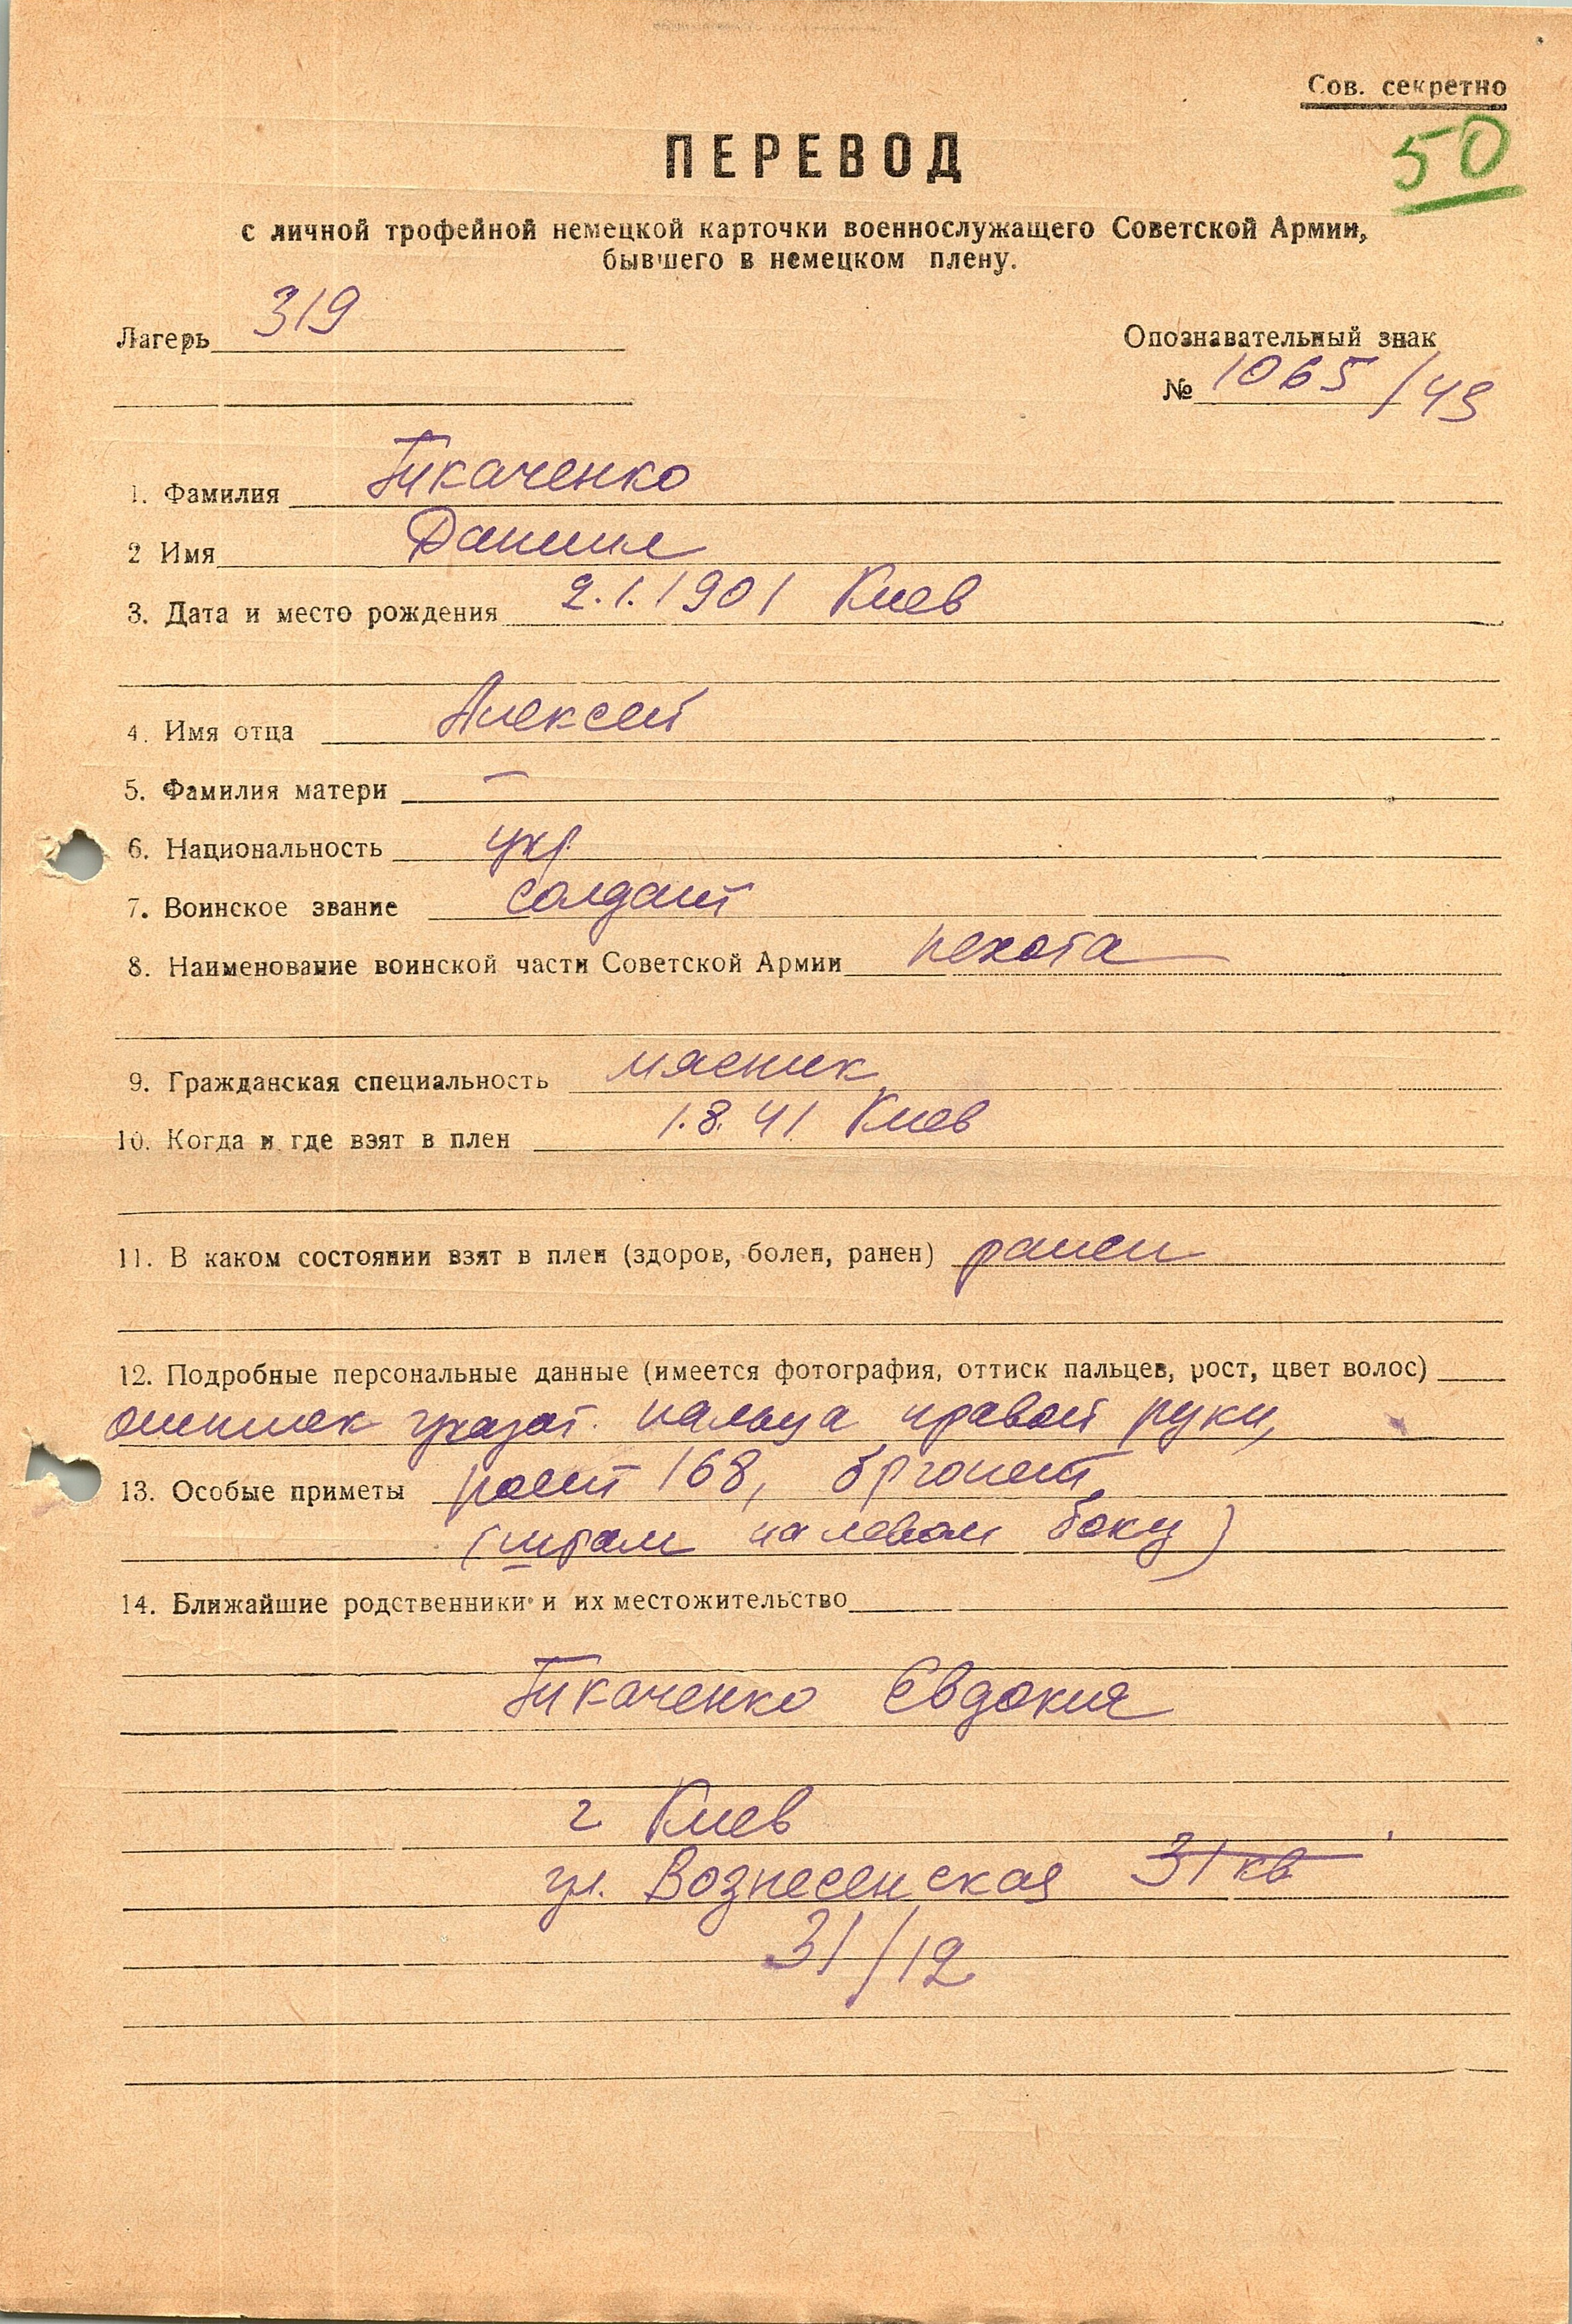 Сов. секретно
50
ПЕРЕВОД
с личной трофейной немецкой карточки военнослужащего Советской Армии,
бывшего в немецком плену.
Лагерь 319
Опознавательный знак
№ 1065/43
1. Фамилия Ткаченко
2 Имя Даниил
3. Дата и место рождения 2.1.1901 Киев
4. Имя отца Алексей
5. Фамилия матери —
6. Национальность укр.
7. Воинское звание солдат
8. Наименование воинской части Советской Армии пехота
9. Гражданская специальность мясник
10. Когда и где взят в плен 1.8.41 Киев
11. В каком состоянии взят в плен (здоров, болен, ранен) ранен
12. Подробные персональные данные (имеется фотография, оттиск пальцев, рост, цвет волос)
оттиск указат. пальца правой руки,
13. Особые приметы рост 168, брюнет
(шрам на левом боку)
14. Ближайшие родственники и их местожительство
Ткаченко Евдокия
г Киев
ул. Вознесенская 31 кв
31/12